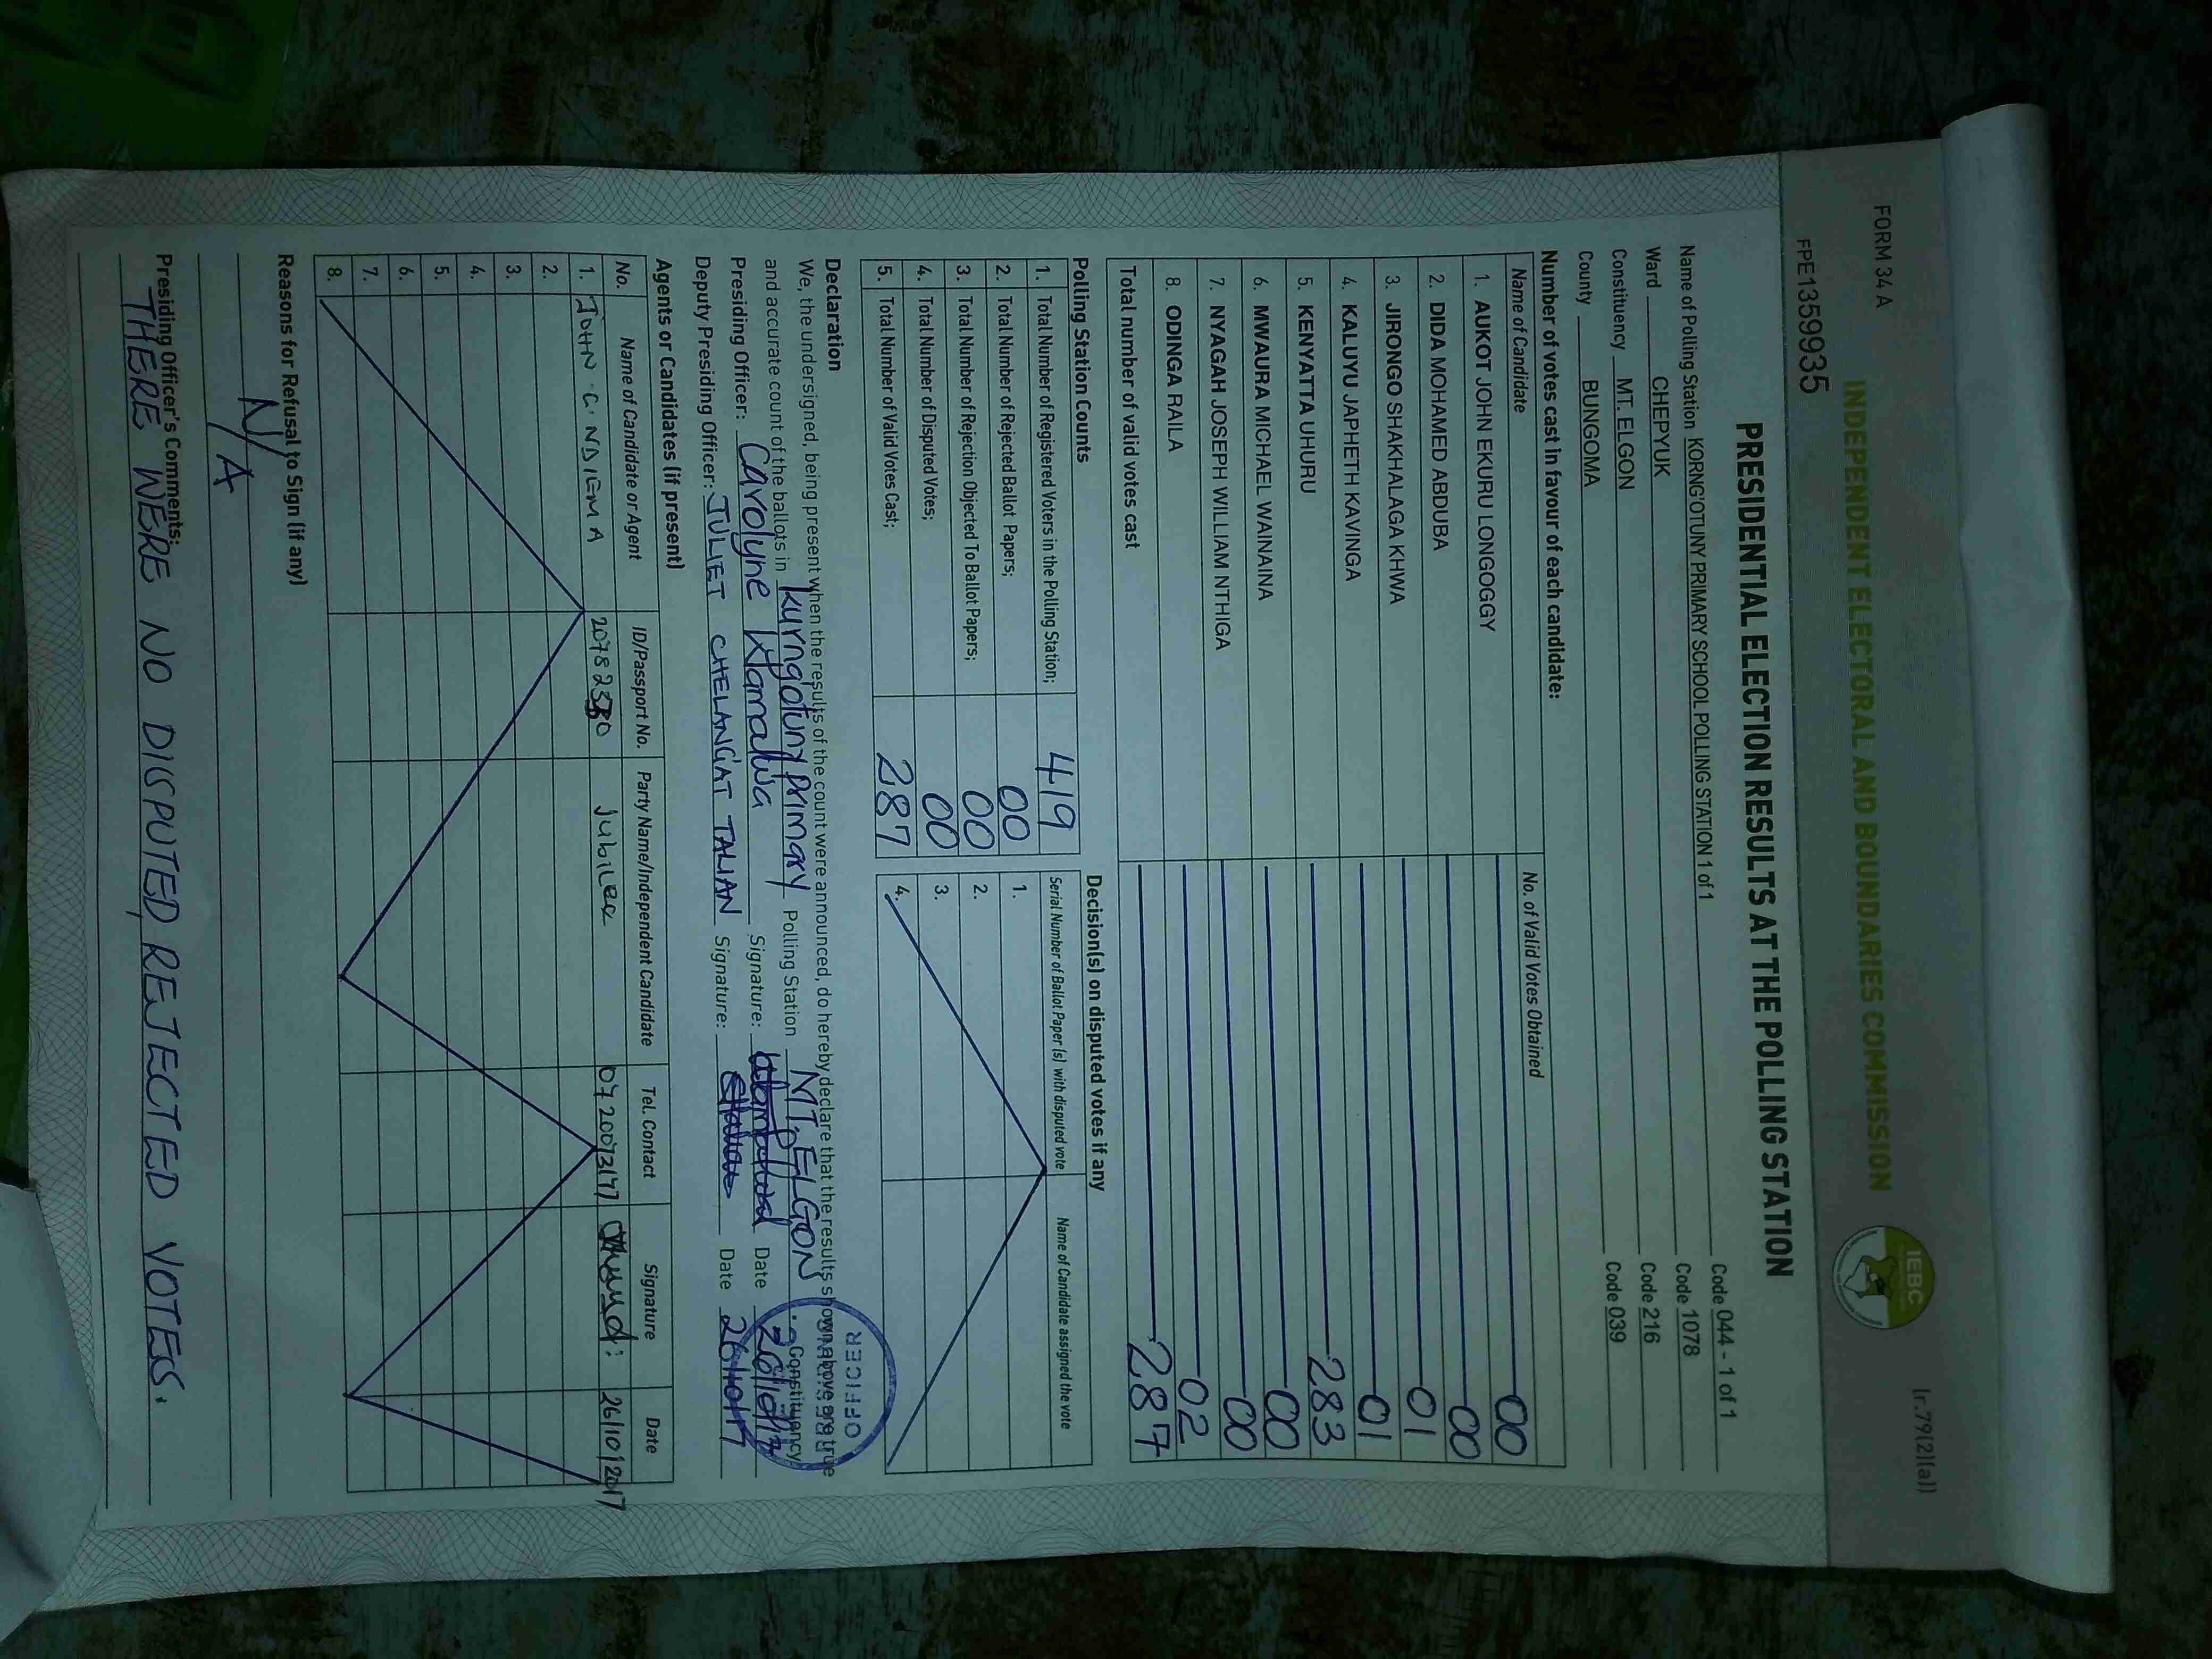 FORM 34 A
(r.79(2)(a))
INDEPENDENT ELECTORAL AND BOUNDARIES COMMISSION
IEBC
FPE1359935
PRESIDENTIAL ELECTION RESULTS AT THE POLLING STATION
Name of Polling Station KORNG'OTUNY PRIMARY SCHOOL POLLING STATION 1 of 1 Code 044 - 1 of 1
Ward CHEPYUK Code 1078
Constituency MT. ELGON Code 216
County BUNGOMA Code 039
Number of votes cast in favour of each candidate:
Name of Candidate No. of Valid Votes Obtained
1. AUKOT JOHN EKURU LONGOGGY 00
2. DIDA MOHAMED ABDUBA 00
3. JIRONGO SHAKHALAGA KHWA 01
4. KALUYU JAPHETH KAVINGA 01
5. KENYATTA UHURU 283
6. MWAURA MICHAEL WAINAINA 00
7. NYAGAH JOSEPH WILLIAM NTHIGA 00
8. ODINGA RAILA 02
Total number of valid votes cast 287
Polling Station Counts
1. Total Number of Registered Voters in the Polling Station; 419
2. Total Number of Rejected Ballot Papers; 00
3. Total Number of Rejection Objected To Ballot Papers; 00
4. Total Number of Disputed Votes; 00
5. Total Number of Valid Votes Cast; 287
Decision(s) on disputed votes if any
Serial Number of Ballot Paper (s) with disputed vote Name of Candidate assigned the vote
1.
2.
3.
4.
Declaration
We, the undersigned, being present when the results of the count were announced, do hereby declare that the results shown above are true
and accurate count of the ballots in kurngotuny primary Polling Station MT. ELGON Constituency.
Presiding Officer: Carolyne Signature: Date 26/10/17
Deputy Presiding Officer: JULIET CHELANGAT TALIAN Signature: Date 26/10/17
OFFICER
Agents or Candidates (if present)
No. Name of Candidate or Agent ID/Passport No. Party Name/Independent Candidate Tel. Contact Signature Date
1. JOHN C. NDIEMA Jubilee 26/10/2017
2.
3.
4.
5.
6.
7.
8.
Reasons for Refusal to Sign (if any)
N/A
Presiding Officer's Comments:
THERE WERE NO DISPUTED, REJECTED VOTES.